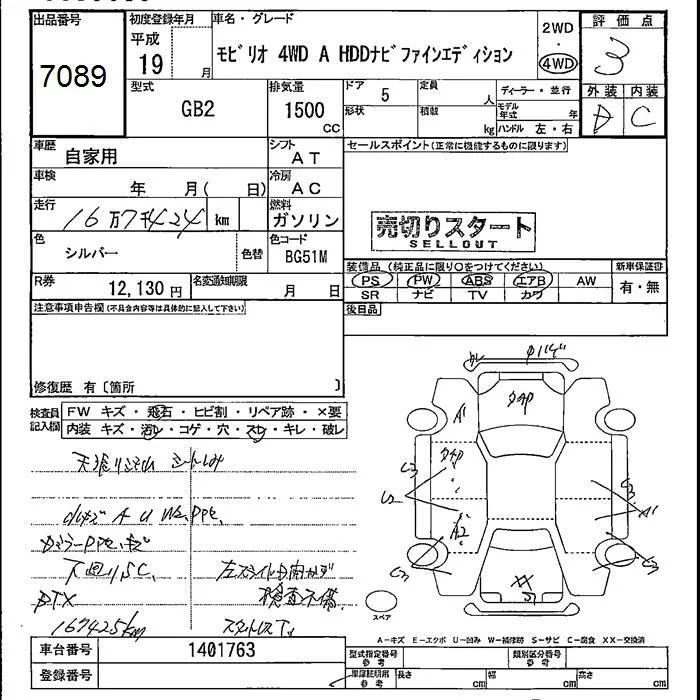 出品番号
7089
初度登録年月
平成
19 月
車名・グレード
モビリオ 4WD A HDDナビファインエディション
2WD
4WD
評価点
3
外装 内装
D C
型式
GB2
排気量
1500
CC
ドア 5
形状
定員
人
積載
kg
ディーラー・並行
モデル年式 年
ハンドル 左・右
車歴
自家用
シフト
AT
セールスポイント(正常に機能するものに限ります)
車検
年 月( 日)
冷房
AC
走行
16万7千424 km
燃料
ガソリン
売切りスタート
SELLOUT
色
シルバー
色替
色コード
BG51M
R券
12,130 円
名変通知期限
月 日
装備品(純正品に限り○をつけてください)
PS PW ABS エアB AW
SR ナビ TV カワ
新車保証書
有・無
注意事項申告欄(不具合内容等は具体的に記入して下さい)
後日品
修復歴 有〔箇所 〕
検査員記入欄
FW キズ・飛石・ヒビ割・リペア跡・×要
内装 キズ・汚レ・コゲ・穴・スレ・キレ・破レ
A1
C3
U2
A2
C3
XX
C3
A1
C3
スペア
下廻りSC.
検査不備.
BTX
167425km
A−キズ E−エクボ U−凹み W−補修跡 S−サビ C−腐食 XX−交換済
車台番号
1401763
登録番号
型式指定番号
参考
類別区分番号
参考
車庫証明用
参考
長さ cm
幅 cm
高さ cm